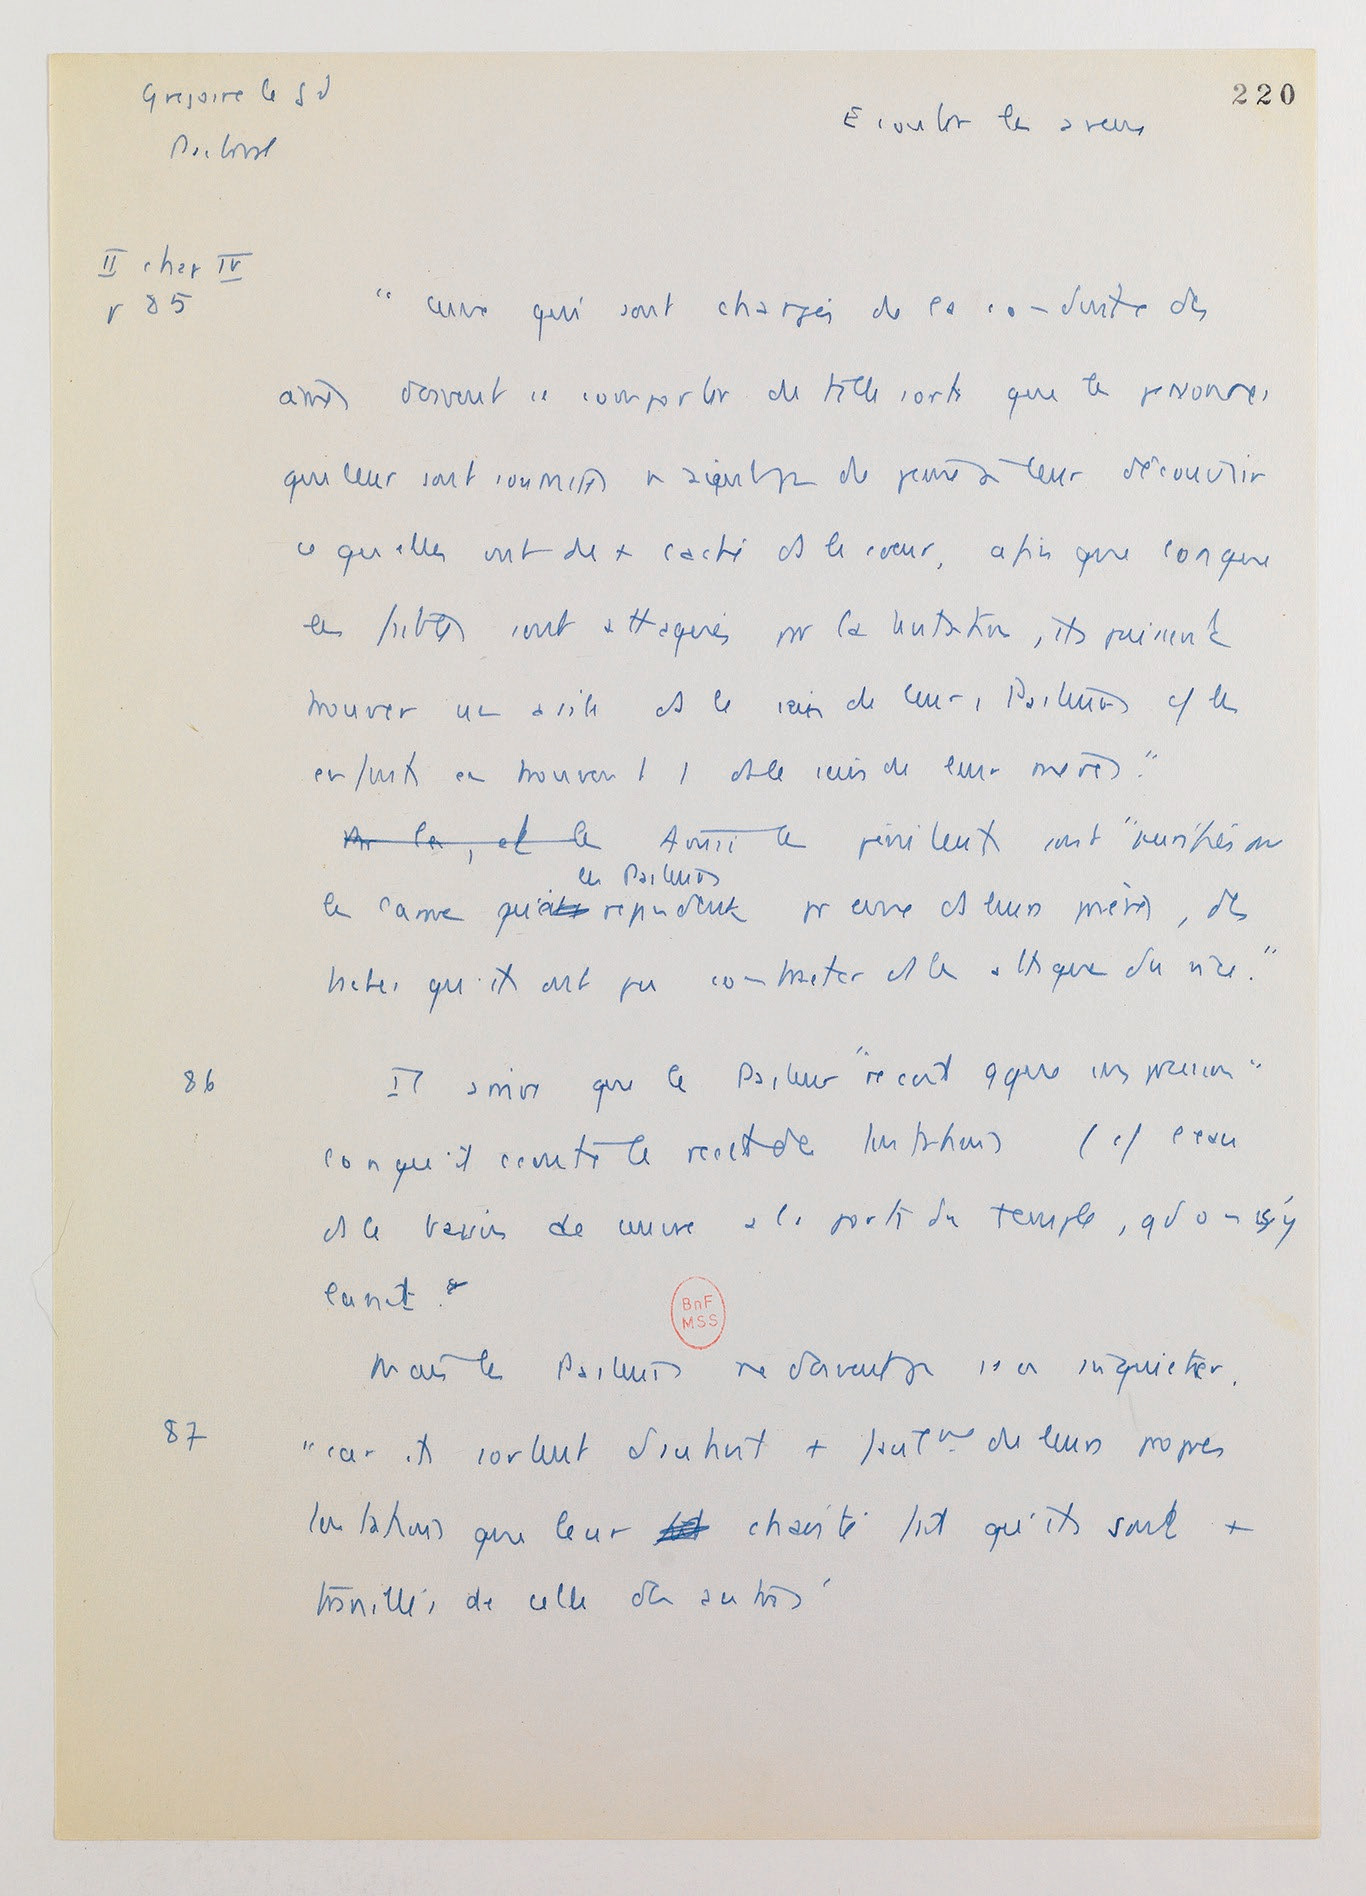 Grégoire le Gd
Pastoral
220
Ecouter les aveux
II chap IV
p 85
" Ceux qui sont chargés de la conduite des
âmes doivent se comporter de telle sorte que les personnes
qui leur sont soumises n'aient pas de peine à leur découvrir
ce qu'elles ont de + caché ds le cœur, afin que lorsque
les fidèles sont attaqués par la tentation, ils puissent
trouver un asile ds le sein de leurs Pasteurs c/ les
enfants en trouvent 1 ds le sein de leur mères."
les, et le Aussi les pénitents sont "purifiés par
les Pasteurs
les larmes que répandent pr eux ds leurs prières, des
taches qu'ils ont pu contracter ds les attaques du vice."
86
Il arrive que le Pasteur "reçoit qque impression"
lorsqu'il écoute le récit des tentations (c/ l'eau
ds le bassin de cuivre à la porte du temple, qd on s'y
lavait.
Mais les Pasteurs ne doivent pas s'en inquiéter.
87
"car ils sortent d'autant + fact de leurs propres
tentations que leur charité fait qu'ils sont +
travaillés de celle des autres"
BnF
MSS